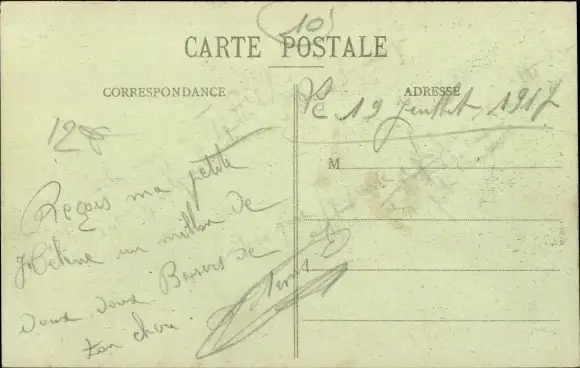 10
CARTE POSTALE
CORRESPONDANCE
ADRESSE
Le 19 Juillet 1917
128
M
Reçois ma petite
Hélène un million de
doux doux Baisers de
ton chéri